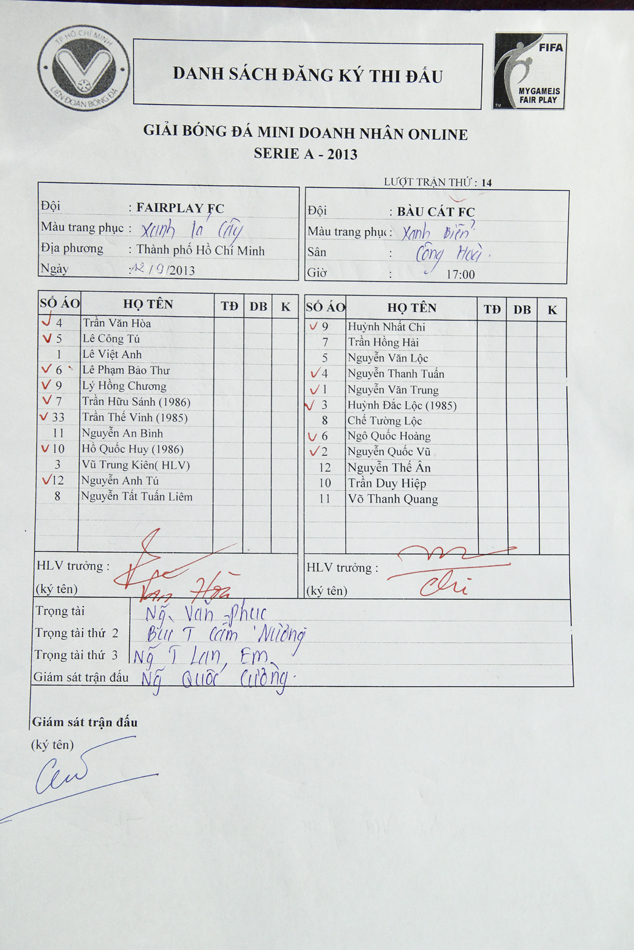 TP HỒ CHÍ MINH
LIÊN ĐOÀN BÓNG ĐÁ
DANH SÁCH ĐĂNG KÝ THI ĐẤU
FIFA
MYGAMEIS
FAIR PLAY
GIẢI BÓNG ĐÁ MINI DOANH NHÂN ONLINE
SERIE A - 2013
LƯỢT TRẬN THỨ : 14
Đội : FAIRPLAY FC
Màu trang phục : Xanh lá cây
Địa phương : Thành phố Hồ Chí Minh
Ngày /9/2013
Đội : BÀU CÁT FC
Màu trang phục : Xanh Biển
Sân : Cộng Hoà
Giờ : 17:00
SỐ ÁO HỌ TÊN TĐ DB K
4 Trần Văn Hòa
5 Lê Công Tú
1 Lê Việt Anh
6 Lê Phạm Bảo Thư
9 Lý Hồng Chương
7 Trần Hữu Sánh (1986)
33 Trần Thế Vinh (1985)
11 Nguyễn An Bình
10 Hồ Quốc Huy (1986)
3 Vũ Trung Kiên( HLV)
12 Nguyễn Anh Tú
8 Nguyễn Tất Tuấn Liêm
SỐ ÁO HỌ TÊN TĐ DB K
9 Huỳnh Nhất Chi
7 Trần Hồng Hải
5 Nguyễn Văn Lộc
4 Nguyễn Thanh Tuấn
1 Nguyễn Văn Trung
3 Huỳnh Đắc Lộc (1985)
8 Chế Tường Lộc
6 Ngô Quốc Hoàng
2 Nguyễn Quốc Vũ
12 Nguyễn Thế Ân
10 Trần Duy Hiệp
11 Võ Thanh Quang
HLV trưởng :
(ký tên) Văn Hòa
HLV trưởng :
(ký tên) Chi
Trọng tài Ng. Văn Phúc
Trọng tài thứ 2 Bùi T Cẩm Nương
Trọng tài thứ 3 Ng T Lan Em
Giám sát trận đấu Ng Quốc Cường.
Giám sát trận đấu
(ký tên)